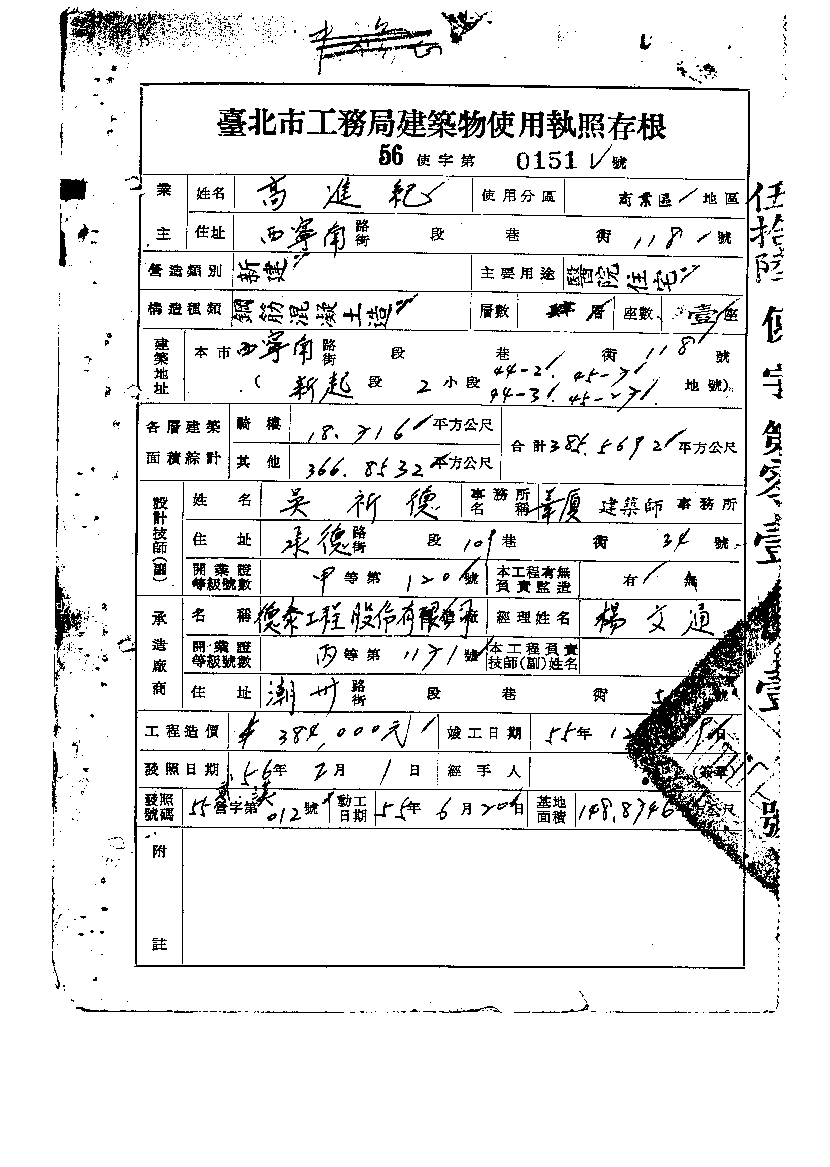 臺北市工務局建築物使用執照存根
56 使字第 0151 號
業主 姓名 高進 使用分區 商業區 地區
住址 西寧南 路街 段 巷 衖 118 號
營造類別 新建 主要用途 醫院住宅
構造種類 鋼筋混凝土造 層數 層 座數 壹 座
建築地址 本市 西寧南 路街 段 巷 衖 118 號
( 新起 段 2 小段 44-2 45-3 44-3 45-23 地號)
各層建築面積綜計 騎樓 18.7161 平方公尺 合計 385.5692 平方公尺
其他 366.8532 平方公尺
設計技師(副) 姓名 吳祈德 事務所名稱 華廈 建築師事務所
住址 承德 路街 段 109 巷 衖 34 號
開業證等級號數 甲 等第 1201 號 本工程有無負責監造 有 無
承造廠商 名稱 德泰工程股份有限公司 經理姓名 楊文通
開業證等級號數 丙 等第 1131 號 本工程負責技師(副)姓名
住址 潮州 路街 段 巷 衖 號
工程造價 384,000元 竣工日期 55年 12
發照日期 56年 2月 1日 經手人
發照號碼 55 營字第 012 號 動工日期 55年 6月 20日 基地面積 148.8746
附註
伍拾陸使字第零壹伍壹號